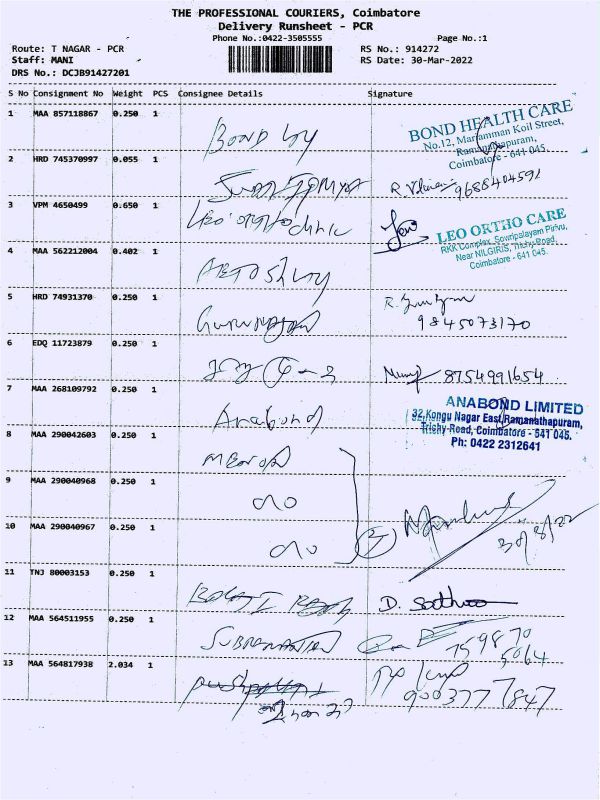 THE PROFESSIONAL COURIERS, Coimbatore
Delivery Runsheet - PCR
Phone No.:0422-3505555 Page No.:1
Route: T NAGAR - PCR RS No.: 914272
Staff: MANI RS Date: 30-Mar-2022
DRS No.: DCJB91427201
S No Consignment No Weight PCS Consignee Details Signature
1 MAA 857118867 0.250 1
BOND HEALTH CARE
No.12, Mariamman Koil Street,
Ramanathapuram,
Coimbatore - 641 045.
2 HRD 745370997 0.055 1
9688404591
3 VPM 4650499 0.650 1
Leo ortho clinic
LEO ORTHO CARE
RKK Complex, Sowripalayam Pirivu,
Near NILGIRIS, Trichy Road,
Coimbatore - 641 045.
4 MAA 562212004 0.402 1
5 HRD 74931370 0.250 1
9845073170
6 EDQ 11723879 0.250 1
8754991654
7 MAA 268109792 0.250 1
Anabond
ANABOND LIMITED
32,Kongu Nagar East,Ramanathapuram,
Trichy Road, Coimbatore - 641 045.
Ph: 0422 2312641
8 MAA 290042603 0.250 1
9 MAA 290040968 0.250 1
10 MAA 290040967 0.250 1
30/3/22
11 TNJ 80003153 0.250 1
12 MAA 564511955 0.250 1
SUBRAMANIAN
759870
5064
13 MAA 564817938 2.034 1
9003777847